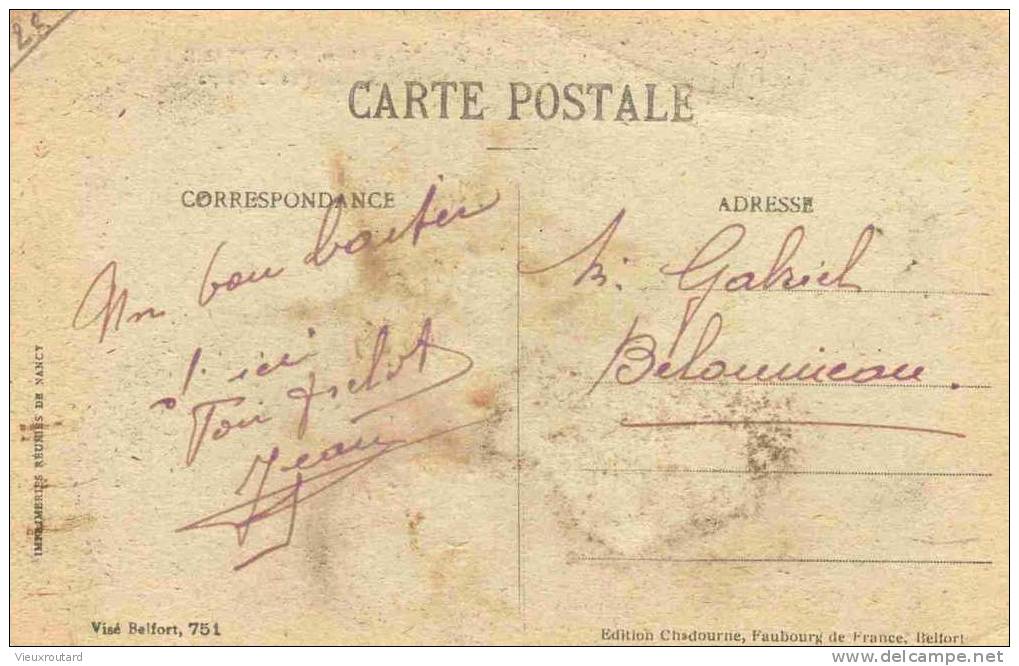 25
CARTE POSTALE
CORRESPONDANCE
ADRESSE
Un bon
d'ici
Ton
Jean
M. Gabriel
IMPRIMERIES RÉUNIES DE NANCY
Visé Belfort, 751
Edition Chadourne, Faubourg de France, Belfort
Vieuxroutard
delcampe.net